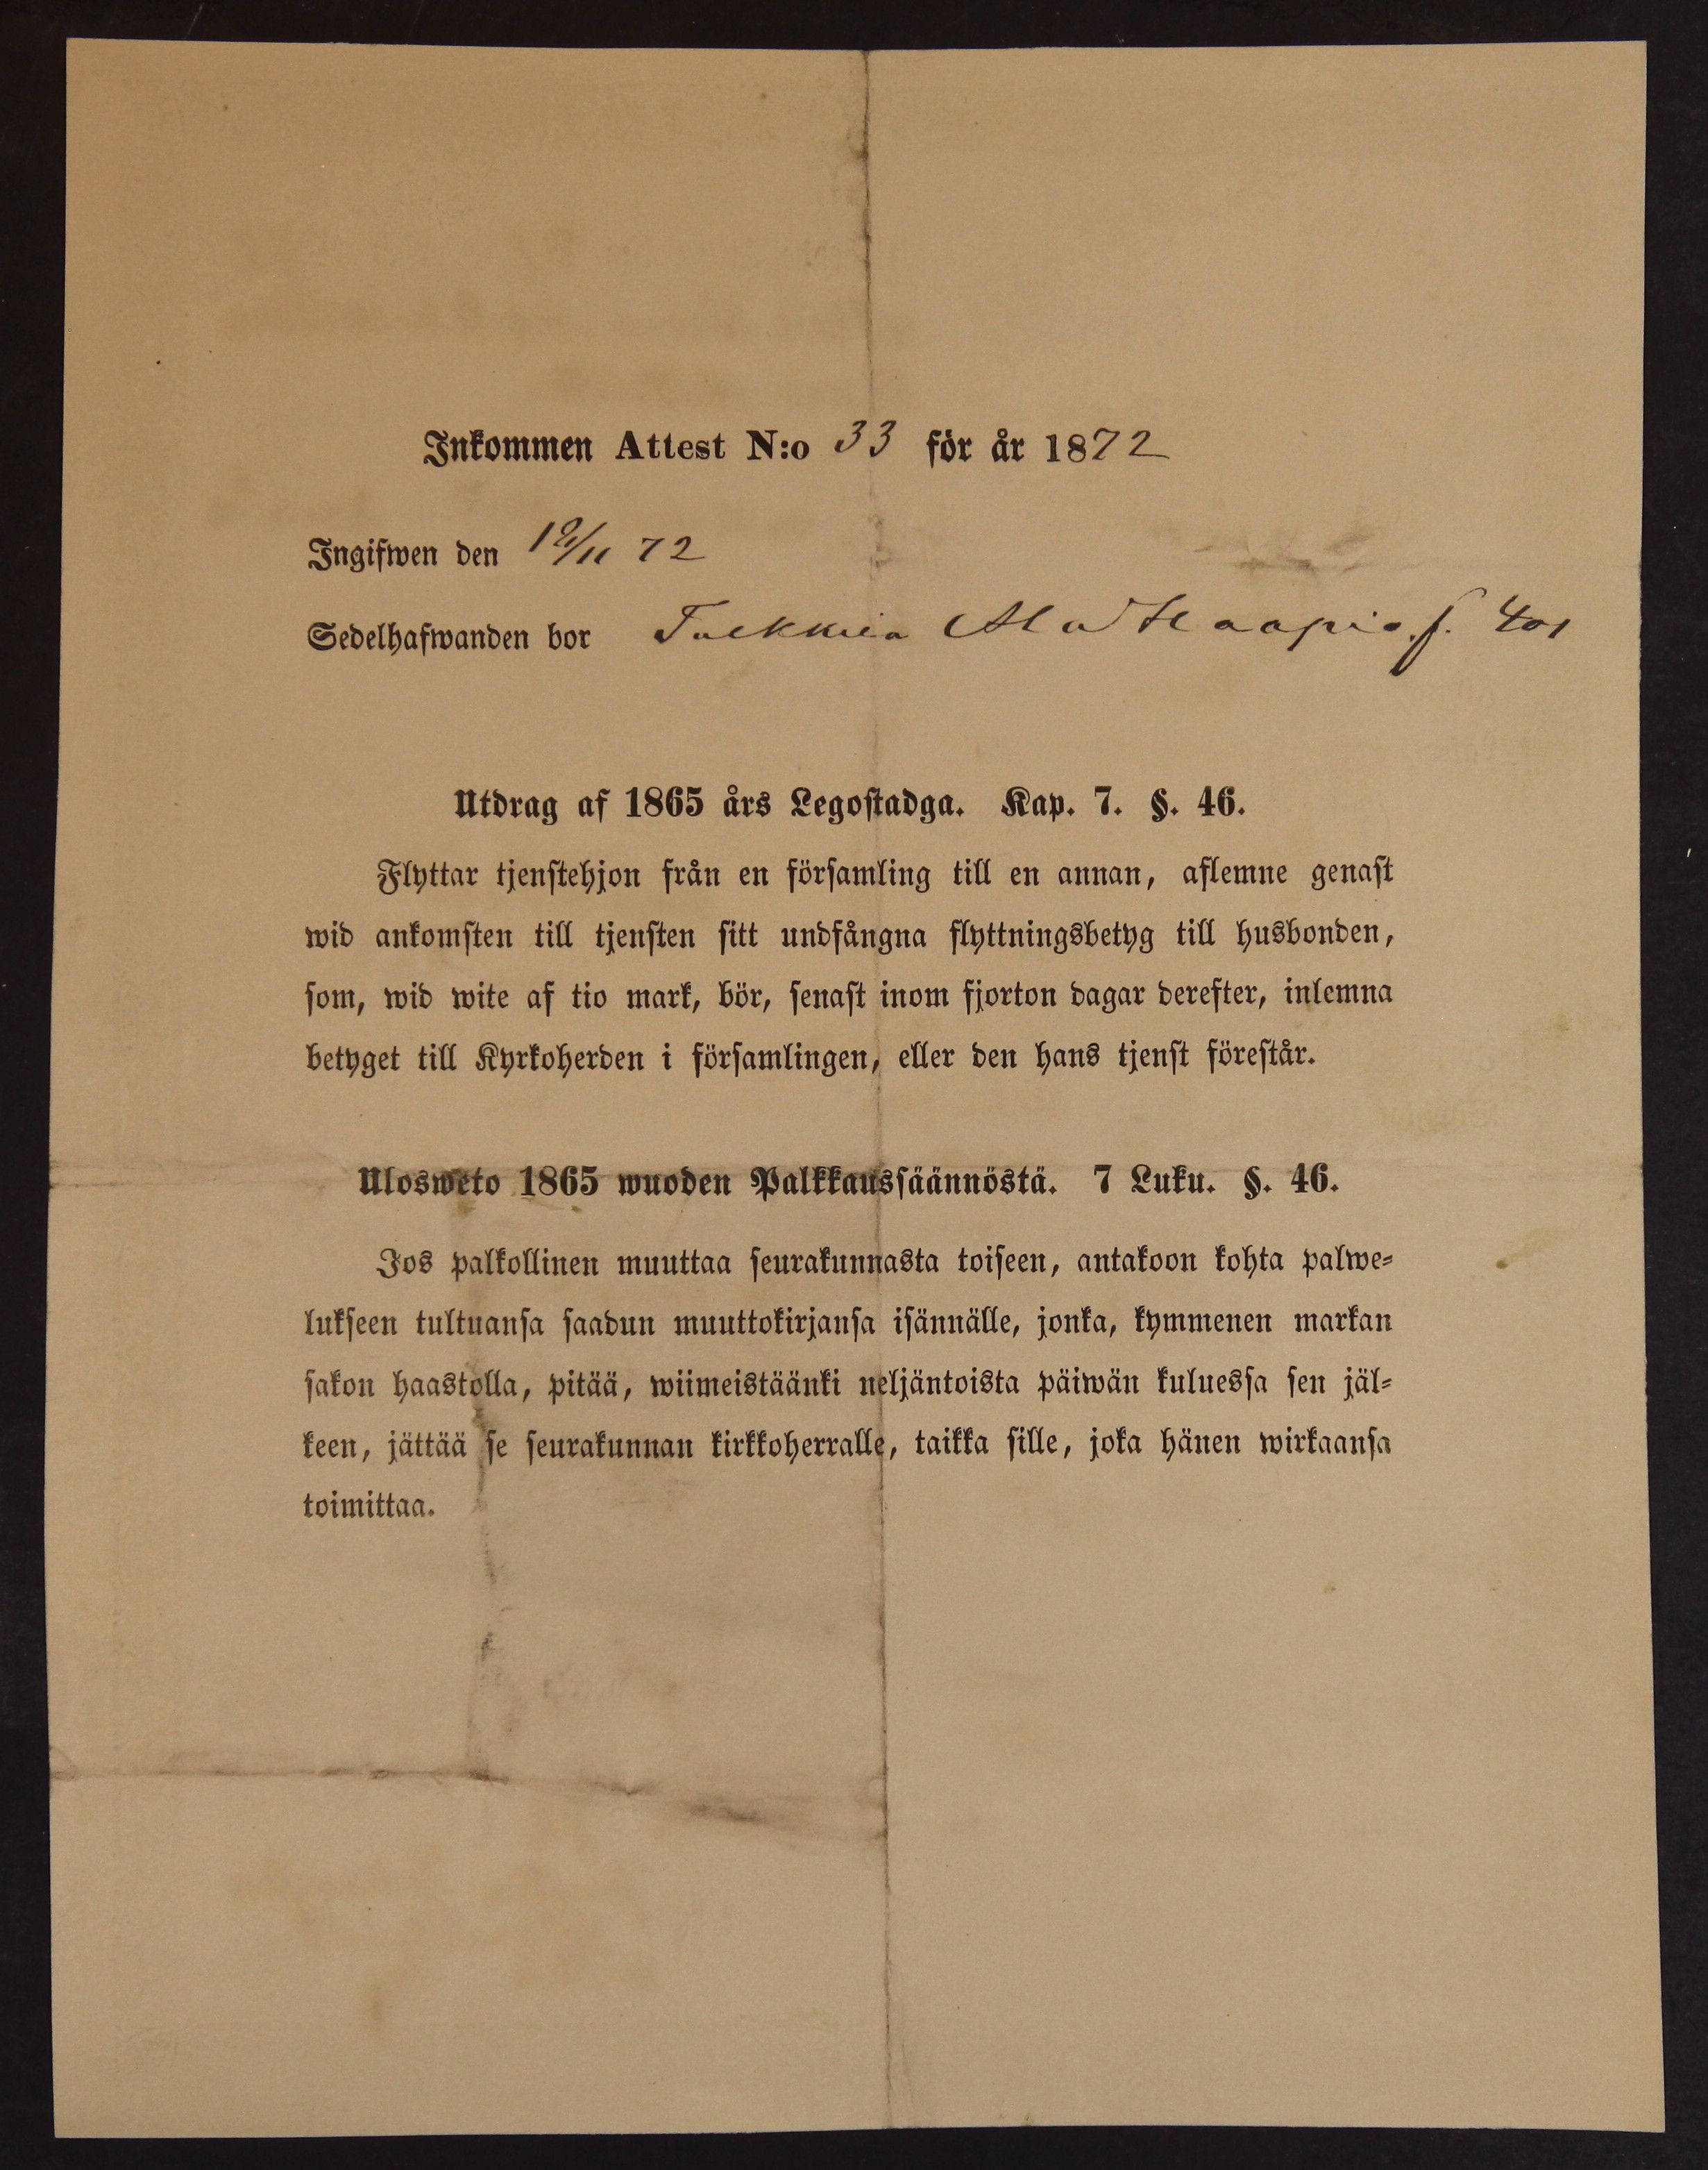 Inkommen Attest N:o 33 för år 1872
Ingifwen den /11 72
Sedelhafwanden bor Haapio. f. 401
Utdrag af 1865 års Legostadga. Kap. 7. §. 46.
Flyttar tjenstehjon från en församling till en annan, aflemne genast
wid ankomsten till tjensten sitt undfångna flyttningsbetyg till husbonden,
som, wid wite af tio mark, bör, senast inom fjorton dagar derefter, inlemna
betyget till Kyrkoherden i församlingen, eller den hans tjenst förestår.
Ulosweto 1865 wuoden Palkkaussäännöstä. 7 Luku. §. 46.
Jos palkollinen muuttaa seurakunnasta toiseen, antakoon kohta palwe-
lukseen tultuansa saadun muuttokirjansa isännälle, jonka, kymmenen markan
sakon haastolla, pitää, wiimeistäänki neljäntoista päiwän kuluessa sen jäl-
keen, jättää se seurakunnan kirkkoherralle, taikka sille, joka hänen wirkaansa
toimittaa.